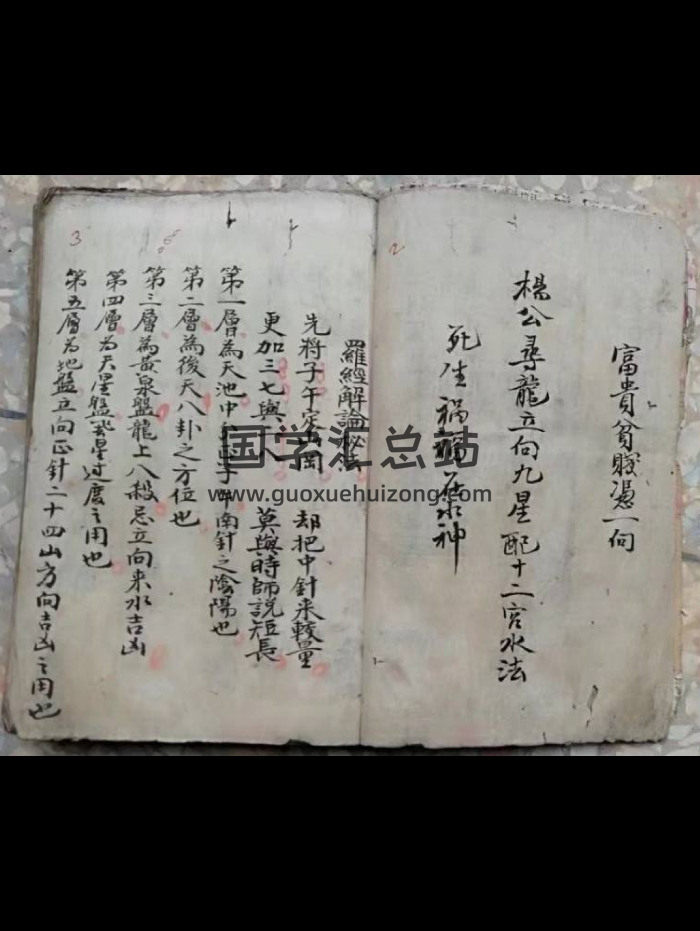 2
富貴貧賤憑一向
楊公尋龍立向九星配十二宮水法
死生禍福在水神
3
羅經解論秘法
先將子午定山岡 却把中針來較量
更加三七與 八 莫與時師說短長
第一層為天池中 子午南針之陰陽也
第二層為後天八卦之方位也
第三層為黃泉盤龍上八殺忌立向来水吉凶
第四層為天星盤 星过度之用也
第五層为地盤立向正針二十四山方向吉凶之用也
国学汇总站
www.guoxuehuizong.com